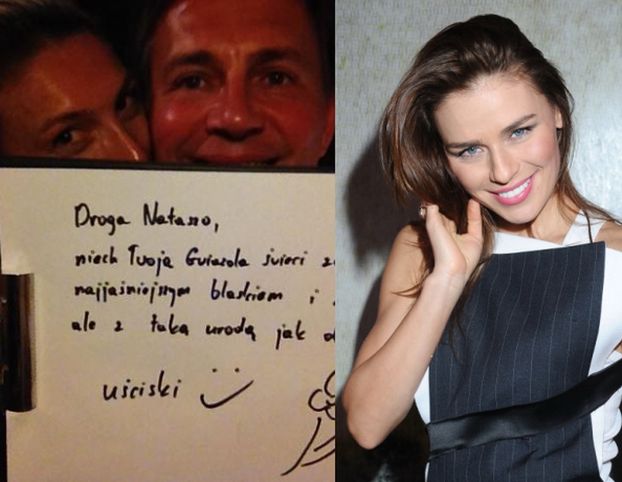 Droga Nataszo,
niech Twoja Gwiazda świeci
najjaśniejszym blaskiem i
ale z taką urodą jak
uściski